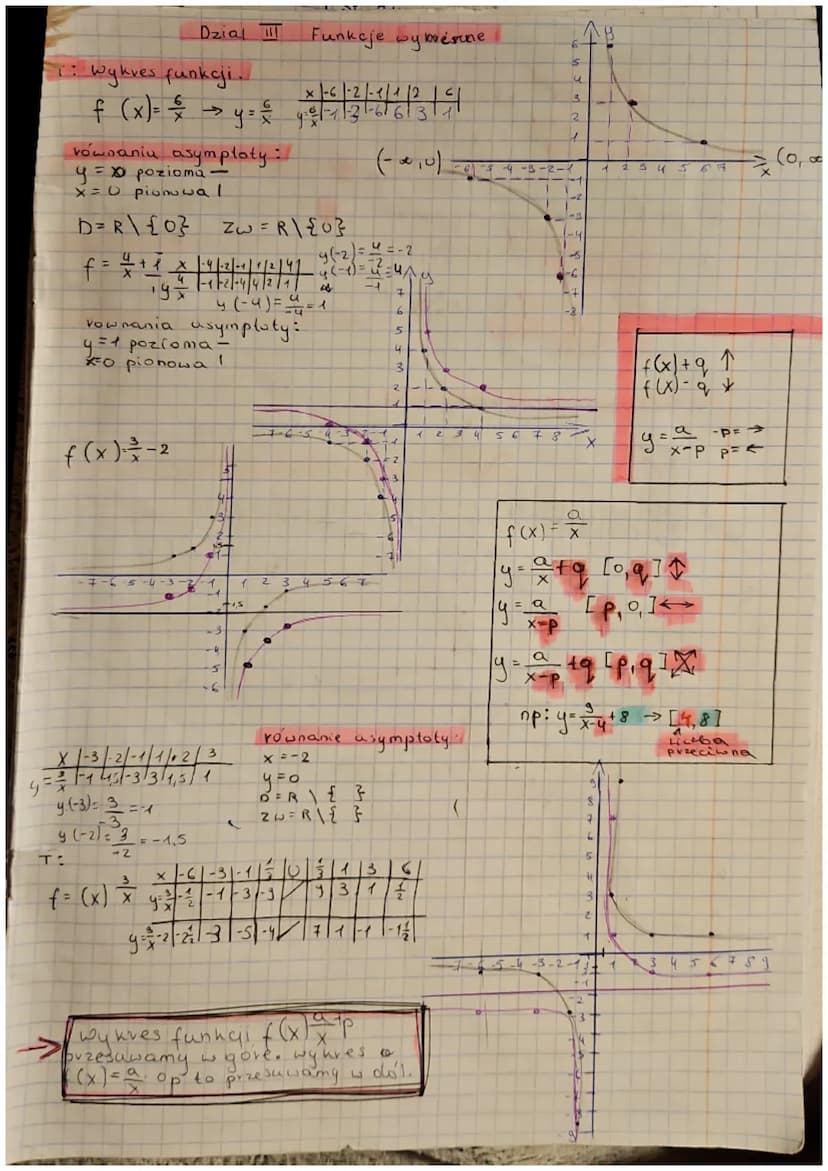 Dział III Funkcje wymierne
T: Wykres funkcji.
f (x) = 6/x → y = 6/x
x | -6 | -2 | -1 | 1 | 2 | 6
y=6/x | -1 | -3 | -6 | 6 | 3 | 1
równania asymptoty:
y = 0 pozioma —
x = 0 pionowa |
D = R \ {0} Zw = R \ {0}
(-∞,0)
(0, ∞
f = 4/x + 1
x | -4 | -2 | -1 | 1 | 2 | 4
y 4/x | -1 | -2 | -4 | 4 | 2 | 1
y(-2) = 4/-2 = -2
y(-1) = 4/-1 = 4
y(-4) = 4/-4 = 1
rownania asymptoty:
y = 1 pozioma —
x=0 pionowa !
f(x)+q ↑
f(x)-q ↓
y = a/x-p -p= →
p= ←
f(x) = 3/x - 2
f(x) = a/x
y = a/x + q [0,q] ↕
y = a/x-p [p,0,] ↔
y = a/x-p + q [p,q]
np: y = 9/x-4 + 8 → [4,8]
liczba
przeciwna
x | -3 | -2 | -1 | 1 | 2 | 3
y=3/x | -1 | 1,5 | -3 | 3 | 1,5 | 1
y(-3) = 3/3 = -1
y(-2) = 3/-2 = -1,5
równanie asymptoty:
x = -2
y = 0
D = R \ { }
Zw = R \ { }
T:
f = (x) 3/x
x | -6 | -3 | -1 | 1/3 | 0 | 1/3 | 1 | 3 | 6
y=3/x | -1/2 | -1 | -3 | -9 | | 9 | 3 | 1 | 1/2
y=3/x-2 | -2 1/2 | -3 | -5 | -4 | | 7 | 1 | -1 | -1 1/2
wykres funkcji f(x) a/x +p
przesuwamy w górę. wykres o
f(x) = a/x op to przesuwamy w dół.